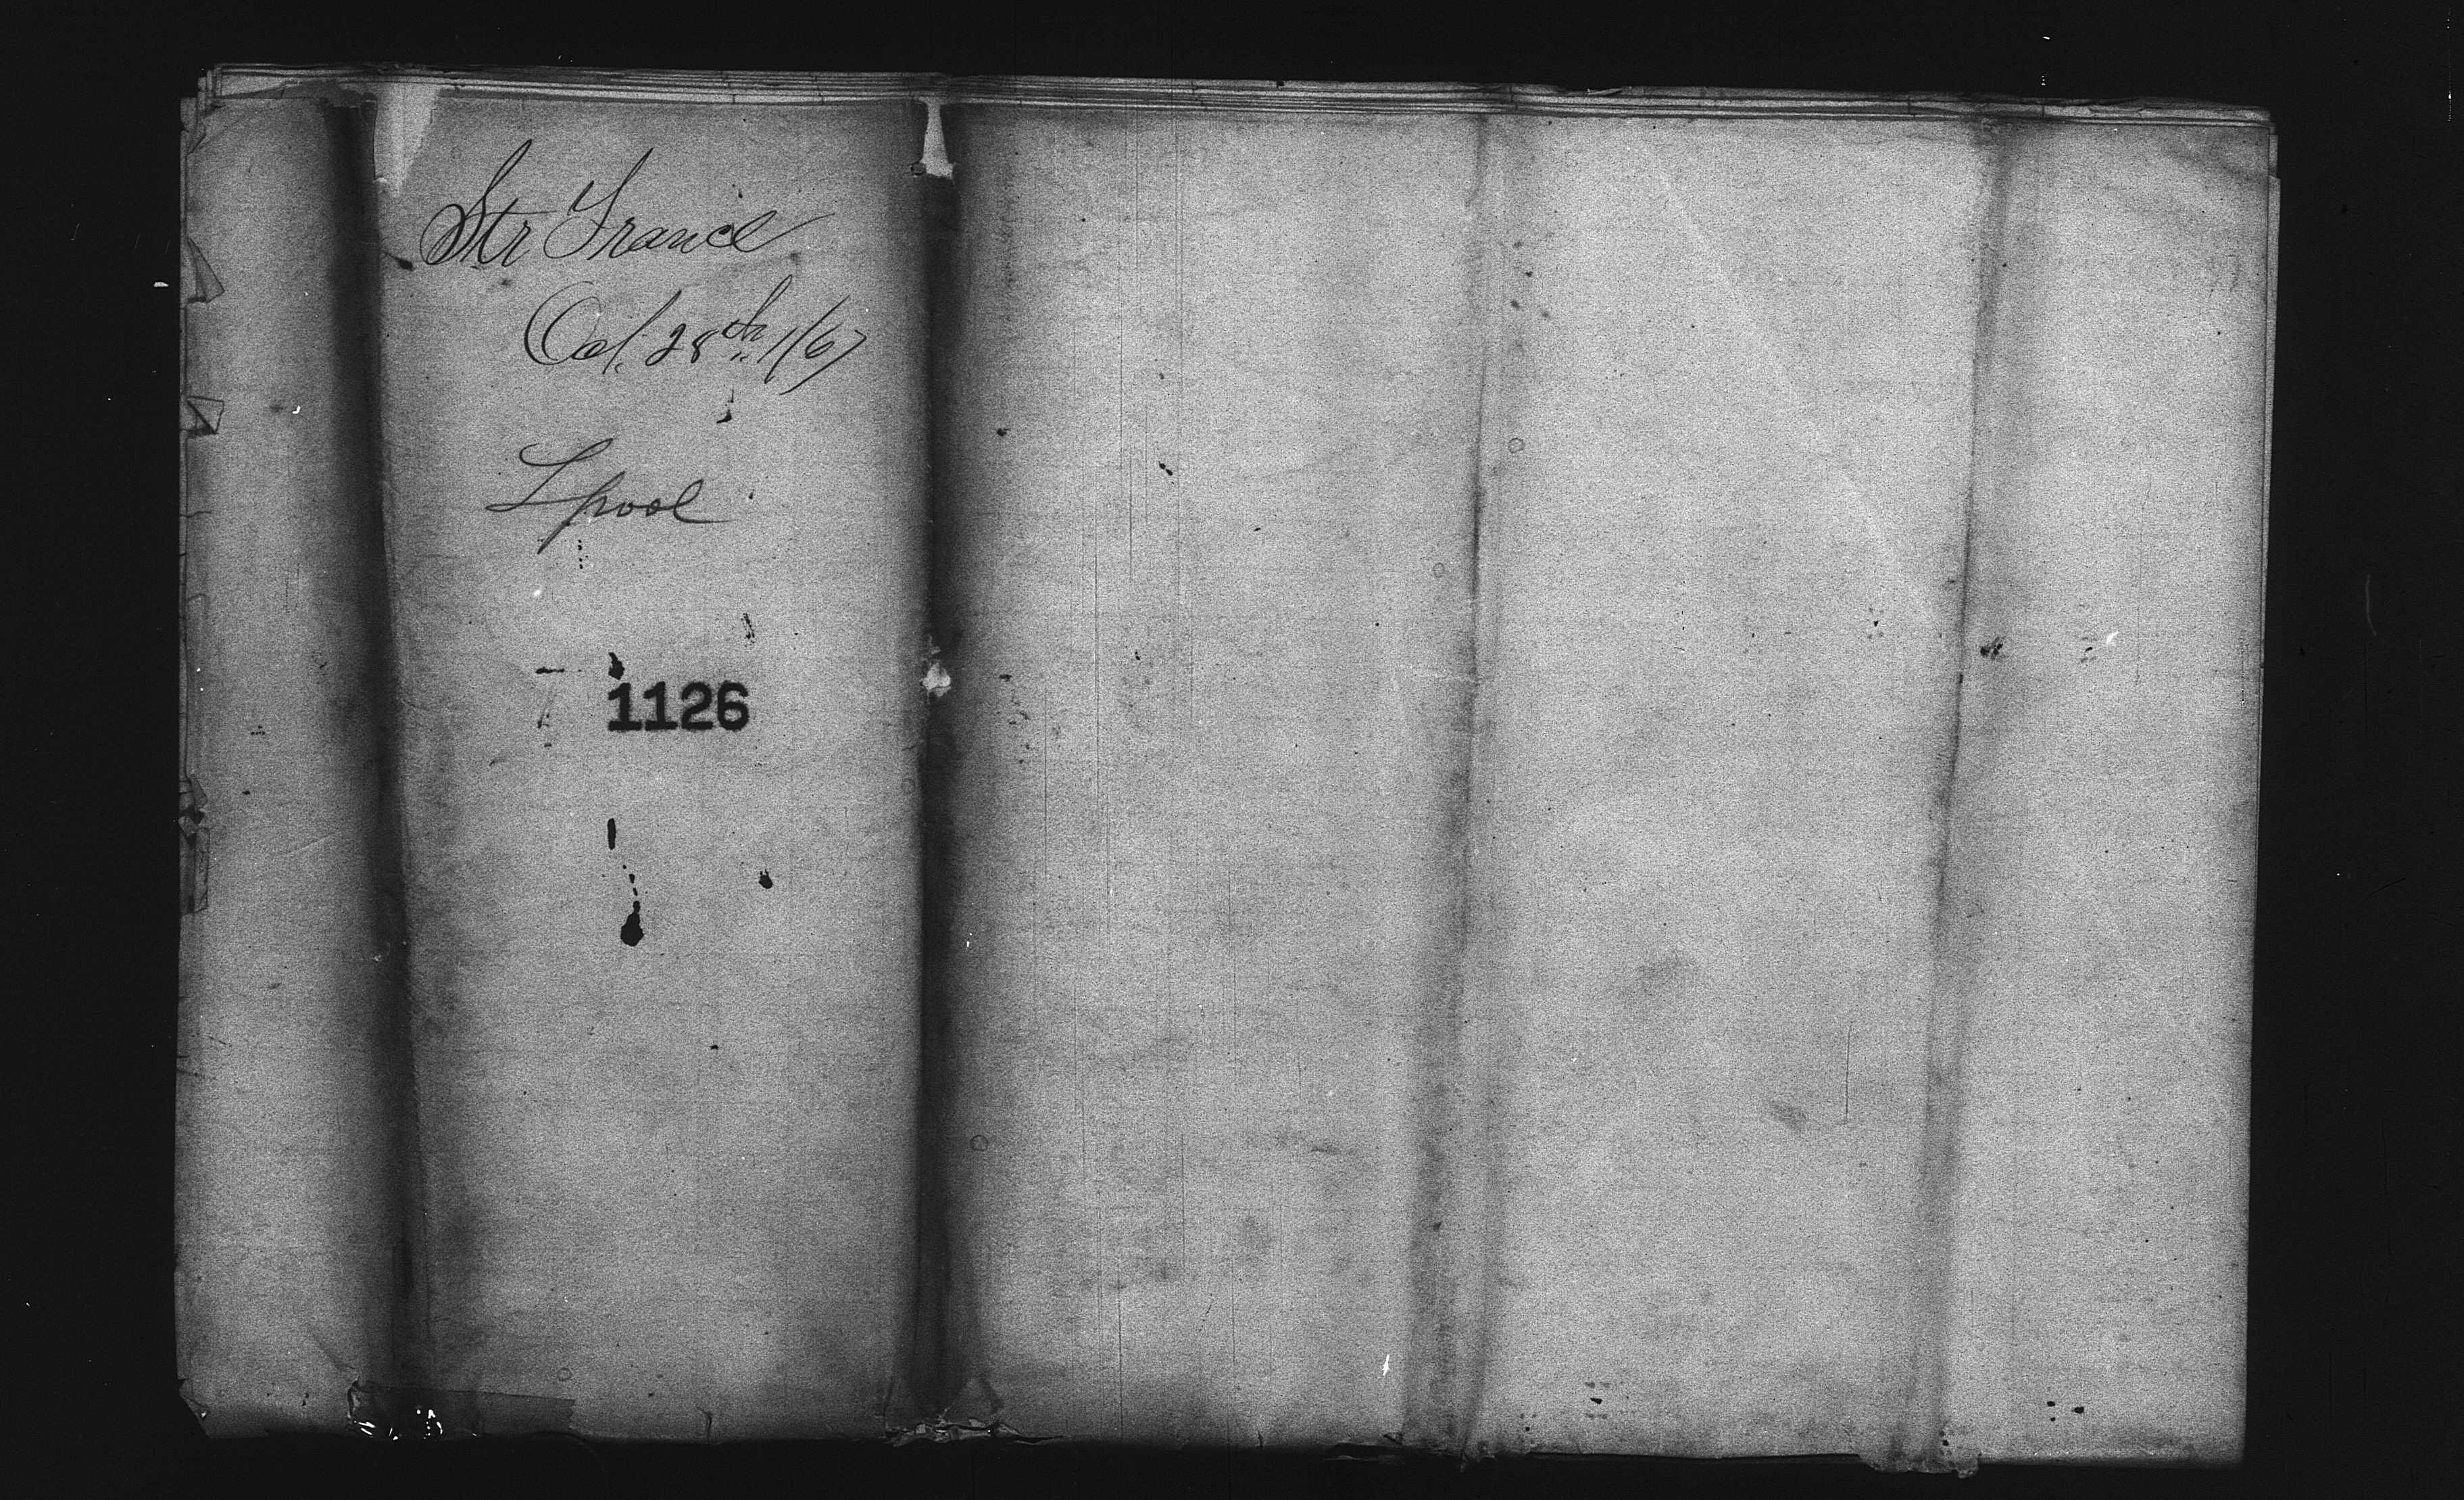 Str France
Oct. 28th 1/67
Lpool
1126